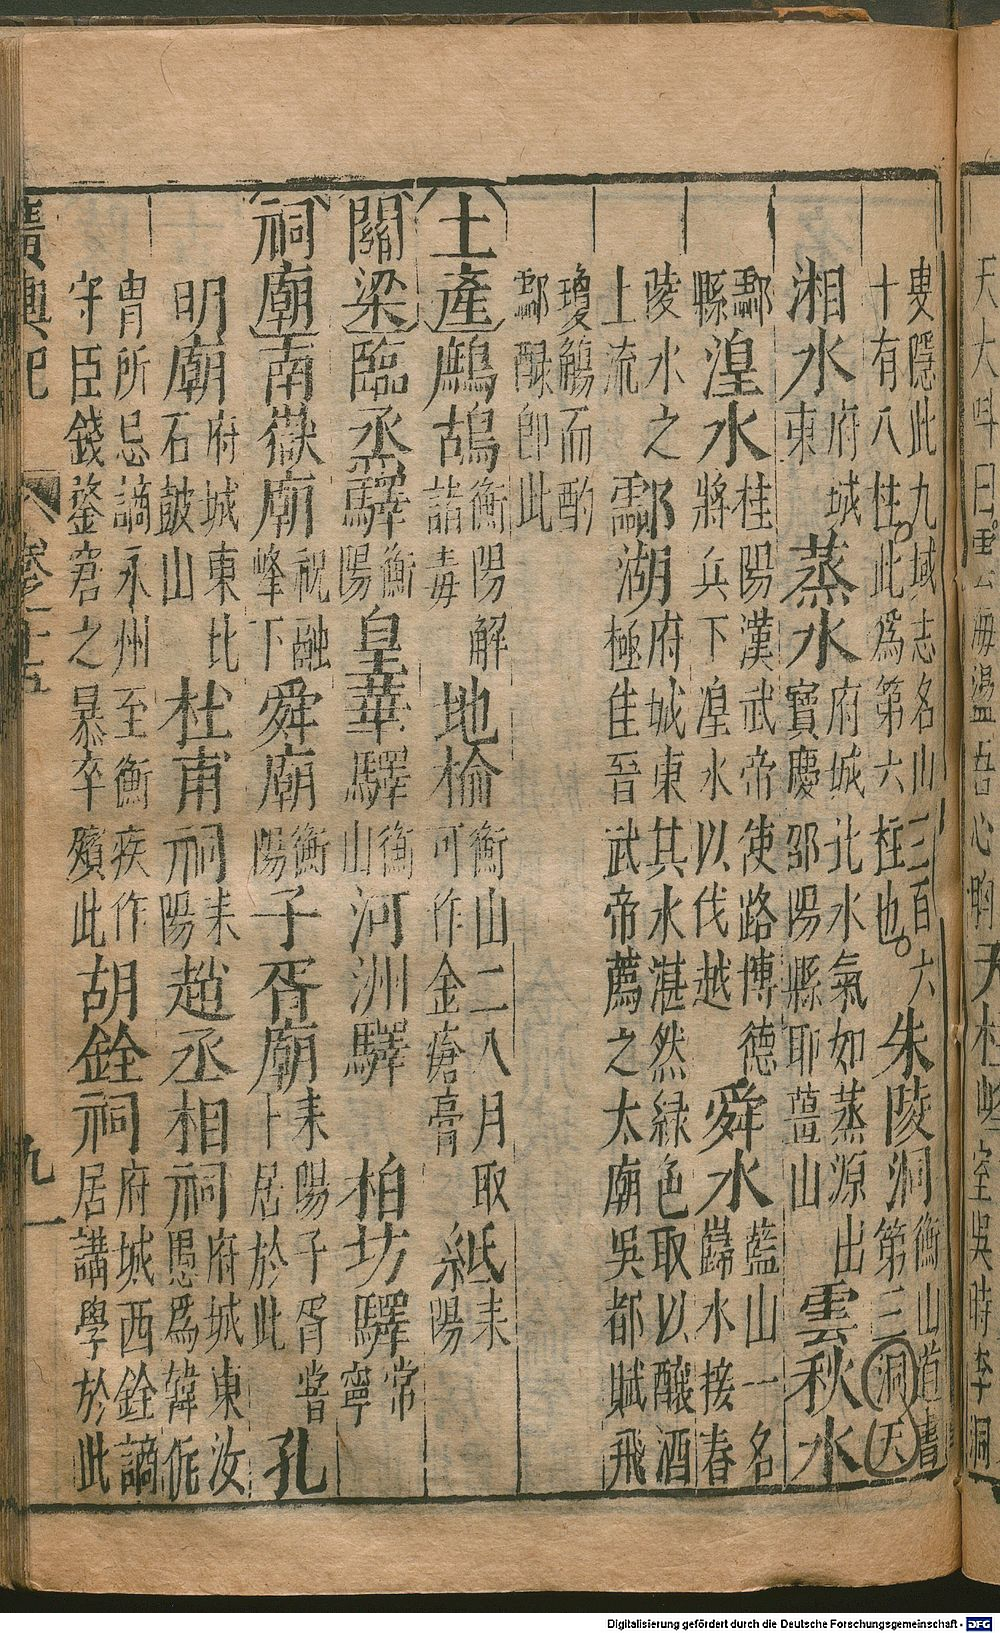 叟隱此九域志名山三百六
十有八柱此為第六柱也朱陵洞衡山道書
第三洞天
湘水府城東蒸水府城北水氣如蒸源出寶慶邵陽縣耶薑山雲秋水
酃縣湟水桂陽漢武帝使路博德將兵下湟水以伐越舜水藍山一名歸水接春
陵水之上流酃湖府城東其水湛然綠色取以釀酒極佳晉武帝薦之太廟吳都賦飛
瓊觴而酌酃醁即此
土產鷓鴣衡陽解詣毒地榆衡山二八月取可作金瘡膏紙耒陽
關梁臨烝驛衡陽皇華驛衡山河洲驛柏坊驛常寧
祠廟南嶽廟祝融峰下舜廟衡陽子胥廟耒陽子胥嘗卜居於此孔
明廟府城東北石鼓山杜甫祠耒陽趙丞相祠府城東汝愚為韓侂
冑所忌謫永州至衡疾作守臣錢鍪窘之暴卒殯此胡銓祠府城西銓謫居講學於此
廣輿記
卷十五
九一
天大
曰
吾心胸天柱峰
室吳時李洞
Digitalisierung gefördert durch die Deutsche Forschungsgemeinschaft - DFG